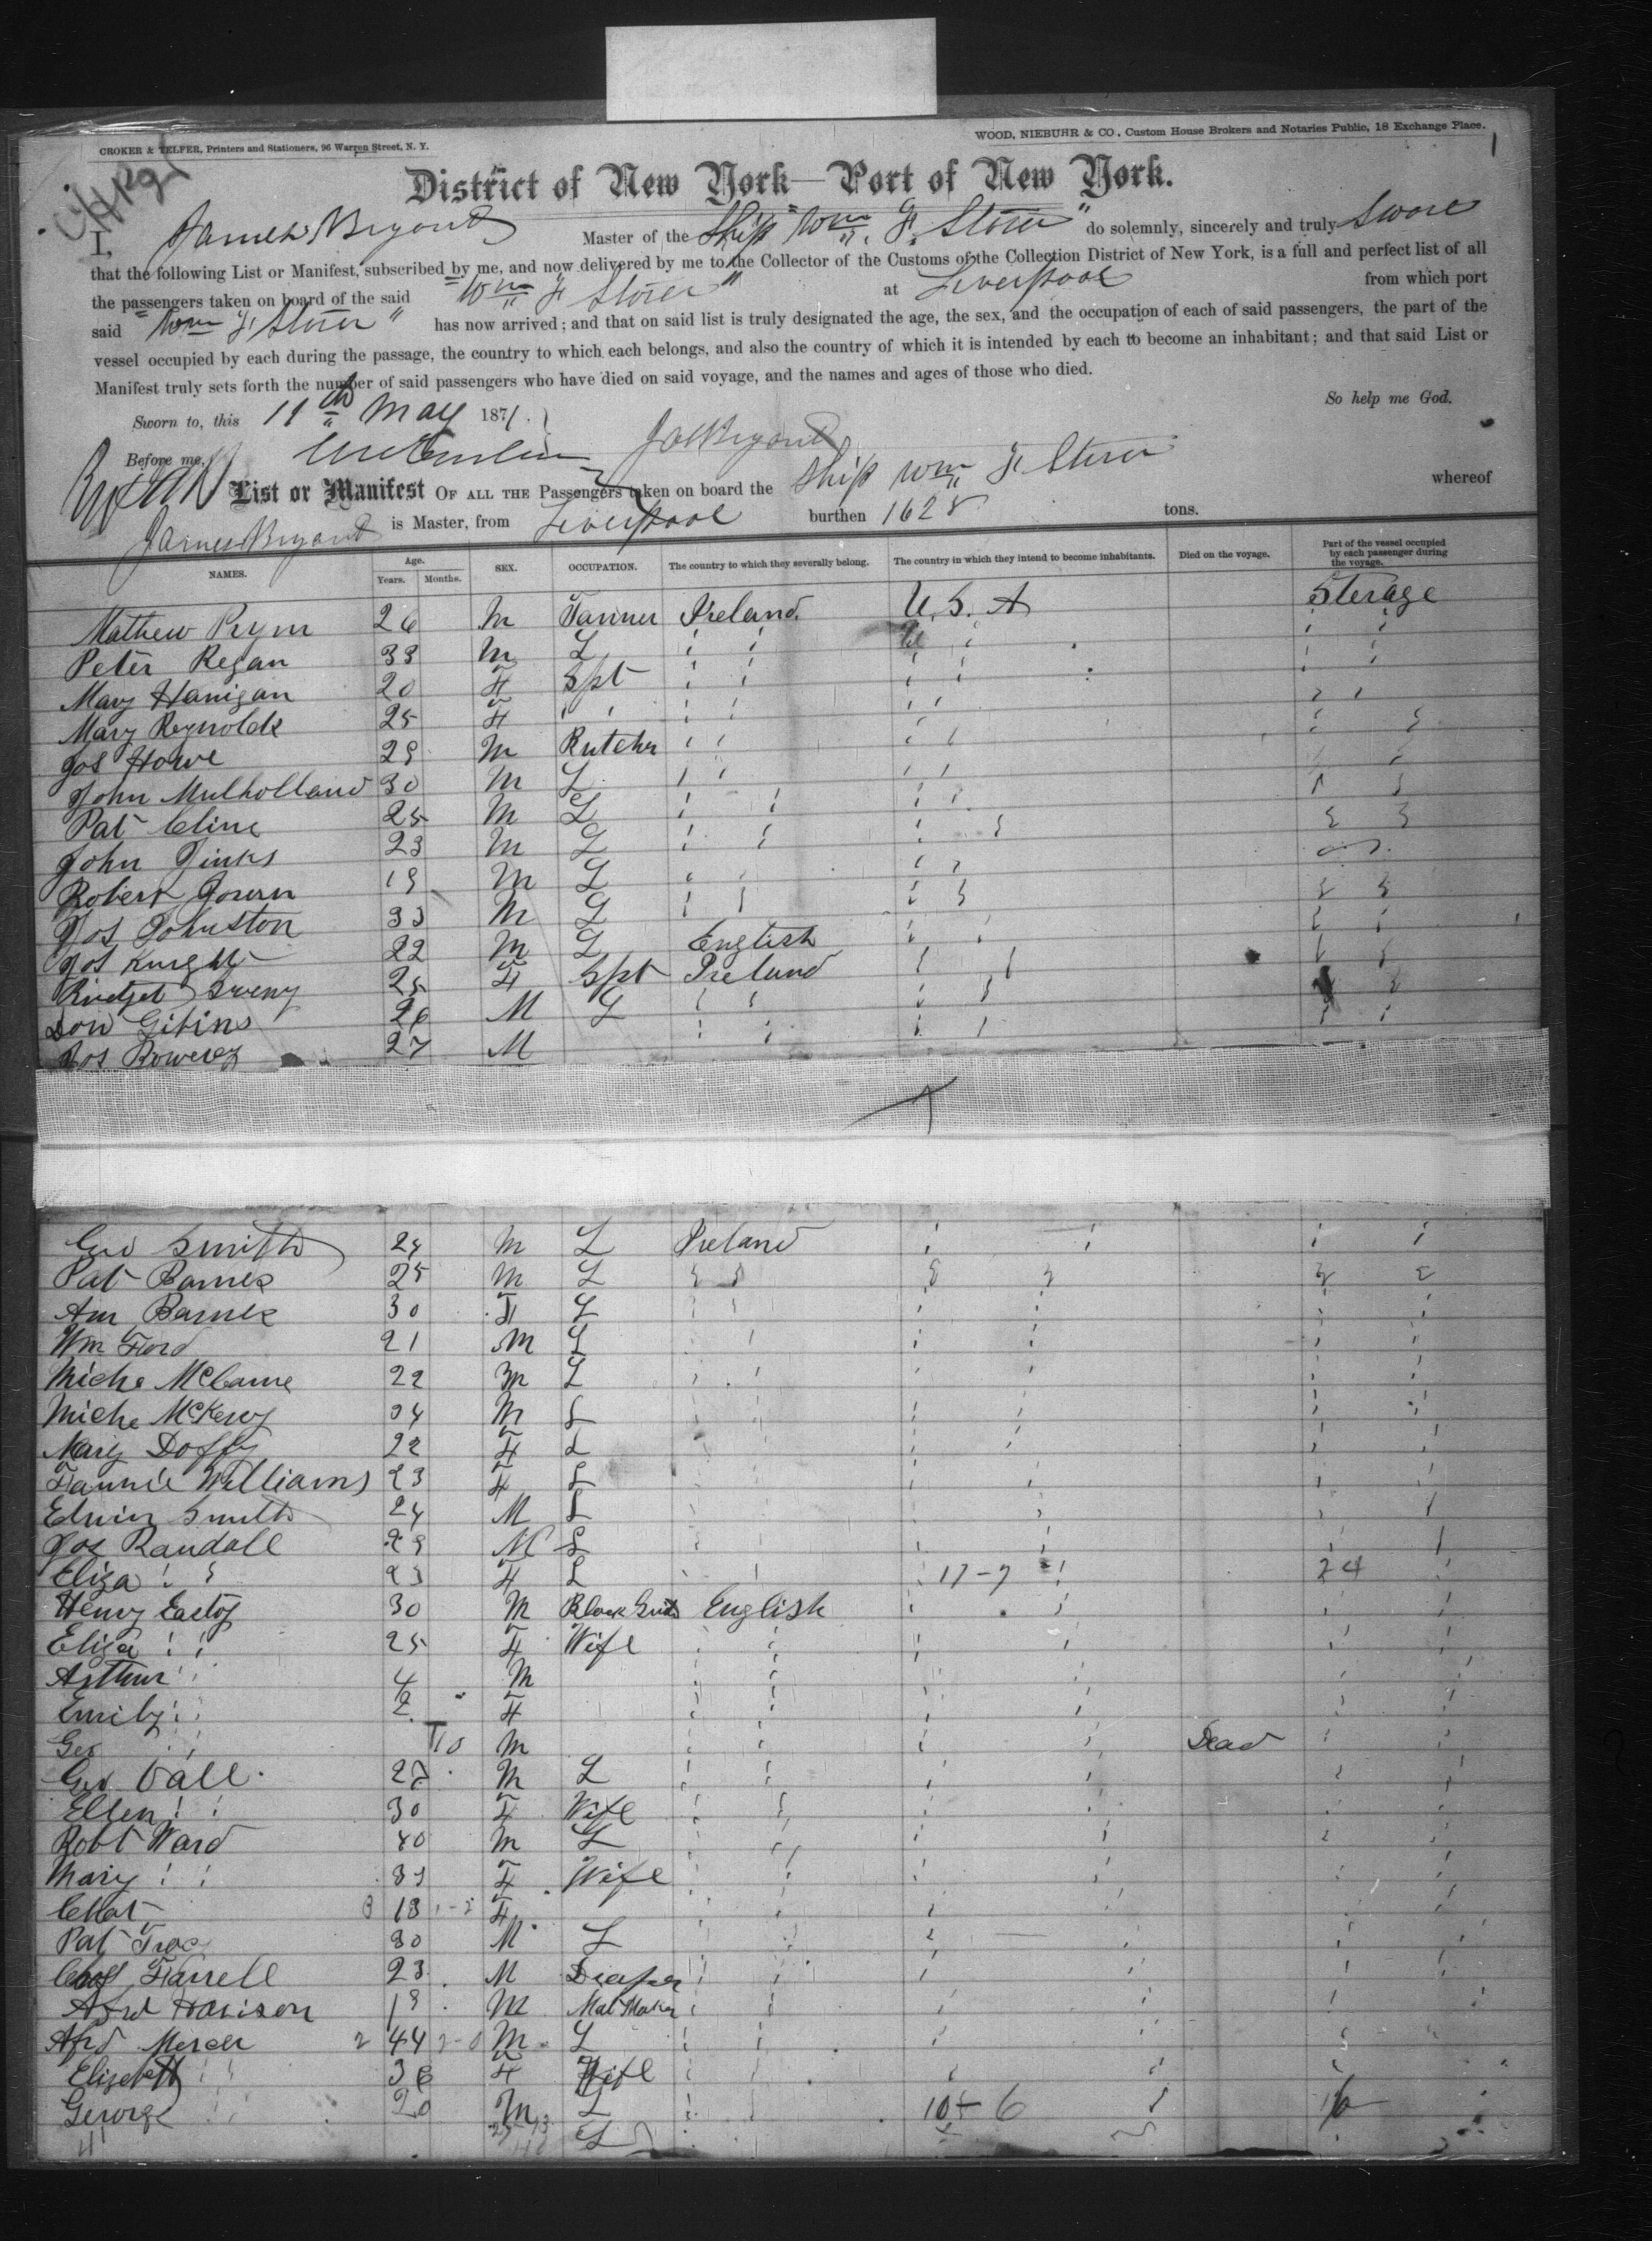 CROKER & TELFER, Printers and Stationers, 96 Warren Street, N. Y.
WOOD, NIEBUHR & CO., Custom House Brokers and Notaries Public, 18 Exchange Place.
1
District of New York—Port of New York.
I, James Bryant Master of the Ship "Wm. F. Storer" do solemnly, sincerely and truly Swore
that the following List or Manifest, subscribed by me, and now delivered by me to the Collector of the Customs of the Collection District of New York, is a full and perfect list of all
the passengers taken on board of the said "Wm F Storer" at Liverpool from which port
said "Wm F Storer" has now arrived; and that on said list is truly designated the age, the sex, and the occupation of each of said passengers, the part of the
vessel occupied by each during the passage, the country to which each belongs, and also the country of which it is intended by each to become an inhabitant; and that said List or
Manifest truly sets forth the number of said passengers who have died on said voyage, and the names and ages of those who died.
So help me God.
Sworn to, this 19th May 1871.
Before me, Jas Bryant
List or Manifest OF ALL THE Passengers taken on board the Ship Wm F Storer whereof
James Bryant is Master, from Liverpool burthen 1628 tons.
NAMES. Age. Years. Months. SEX. OCCUPATION. The country to which they severally belong. The country in which they intend to become inhabitants. Died on the voyage. Part of the vessel occupied by each passenger during the voyage.
Mathew Prym 26 M Tanner Ireland. U. S. A Sterage
Peter Regan 33 M L " "
Mary Hanigan 20 F Spt " "
Mary Reynolds 25 F " " " "
Jos Howe 29 M Butcher " "
John Mulholland 30 M L " "
Pat Cline 25 M L " "
John Jinks 23 M L " "
Robert Govern 19 M L " "
Jos Johnston 33 M L " "
Jos Knight 22 M L English " "
Bridget Sweny 25 F Spt Ireland " "
Gibins 26 M L " "
Jos Bowerey 27 M " "
Geo Smith 24 M L Ireland " "
Pat Barnes 25 M L " "
Ann Barnes 30 F L " "
Wm Ford 21 M L " "
Miche McCanne 22 M L " "
Miche McKervy 34 M L " "
Mary Doffy 22 F L " "
Fannie Williams 23 F L " "
Edwin Smith 24 M L " "
Jos Randall 29 M L " "
Eliza " " 23 F L " " 17-7 24
Henry Eastoy 30 M Black Smith English " "
Eliza " " 25 F Wife " "
Arthur " " 4 M " "
Emily " " 2 F " "
Geo " " 10 M " " Dead
Geo Vall 28 M L " "
Ellen " " 30 F Wife " "
Robt Ward 40 M L " "
Mary " " 39 F Wife " "
Chat 13 F " "
Pat Troey 30 M L " "
Farrell 23 M Draper " "
Afrd Harison 19 M Mat Maker " "
Afrd Mercer 44 M L " "
Elizebett " " 36 F Wife " "
George " " 20 M L " " 10-6 16
41